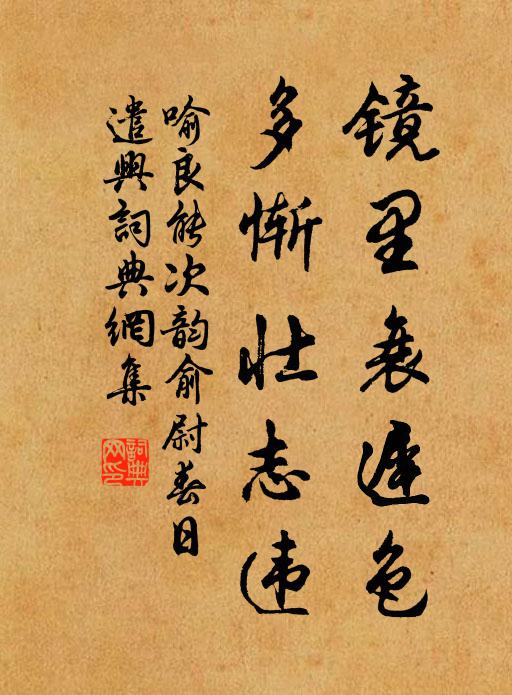 镜里衰遲色
多惭壮志违
喻良能次韵俞尉春日
遣興詞典網集
詞典
网印